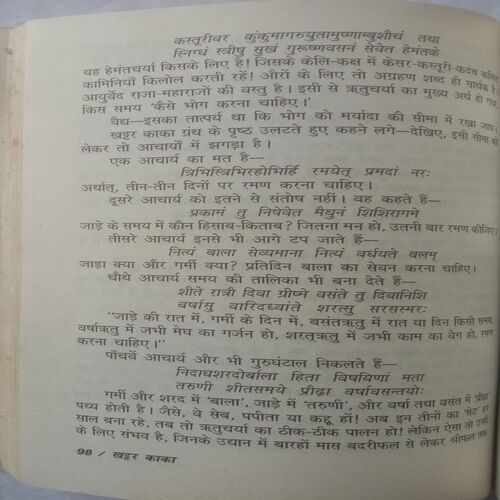 कस्तूरीवर कुंकुमागरुयुतामुष्णाम्बुशौचं तथा
स्निग्धं स्त्रीषु सुखं गुरूष्णवसनं सेवेत हेमंतके
यह हेमंतचर्या किसके लिए है! जिसके केलि-कक्ष में केसर-कस्तूरी-कदंब
कामिनियाँ किलोल करती रहें! औरों के लिए तो अग्रहण शब्द ही सार्थक है।
आयुर्वेद राजा-महाराजों की वस्तु है। इसी से ऋतुचर्या का मुख्य अर्थ हो गया
किस समय 'कैसे भोग करना चाहिए।'
वैद्य—इसका तात्पर्य था कि भोग को मर्यादा की सीमा में रखा जाय।
खट्टर काका ग्रंथ के पृष्ठ उलटते हुए कहने लगे—देखिए, इसी सीमा को
लेकर तो आचार्यों में झगड़ा है।
एक आचार्य का मत है—
त्रिभिस्त्रिभिरहोभिर्हि रमयेत् प्रमदां नरः
अर्थात्, तीन-तीन दिनों पर रमण करना चाहिए।
दूसरे आचार्य को इतने से संतोष नहीं। वह कहते हैं—
प्रकामं तु निषेवेत मैथुनं शिशिरागमे
जाड़े के समय में कौन हिसाब-किताब? जितना मन हो, उतनी बार रमण कीजिए।
तीसरे आचार्य इनसे भी आगे टप जाते हैं—
नित्यं बाला सेव्यमाना नित्यं वर्धयते बलम्
जाड़ा क्या और गर्मी क्या? प्रतिदिन बाला का सेवन करना चाहिए।
चौथे आचार्य समय की तालिका भी बना देते हैं—
शीते रात्रौ दिवा ग्रीष्मे वसंते तु दिवानिशि
वर्षासु वारिदध्वांते शरत्सु सरसस्मरः
"जाड़े की रात में, गर्मी के दिन में, बसंतऋतु में रात या दिन किसी समय,
वर्षाऋतु में जभी मेघ का गर्जन हो, शरत्ऋतु में जभी काम का वेग हो, रमण
करना चाहिए।"
पाँचवें आचार्य और भी गुरुघंटाल निकलते हैं—
निदाघशरदोर्बाला हिता विषयिणां मता
तरुणी शीतसमये प्रौढ़ा वर्षावसन्तयोः
गर्मी और शरद में 'बाला', जाड़े में 'तरुणी', और वर्षा तथा वसंत में 'प्रौढ़ा'
पथ्य होती है। जैसे, वे सेब, पपीता या कद्दू हों! अब इन तीनों का 'सेट' हर
साल बना रहे, तब तो ऋतुचर्या का ठीक-ठीक पालन हो! लेकिन ऐसा तो उन्हीं
के लिए संभव है, जिनके उद्यान में बारहों मास बदरीफल से लेकर श्रीफल तक
98 / खट्टर काका